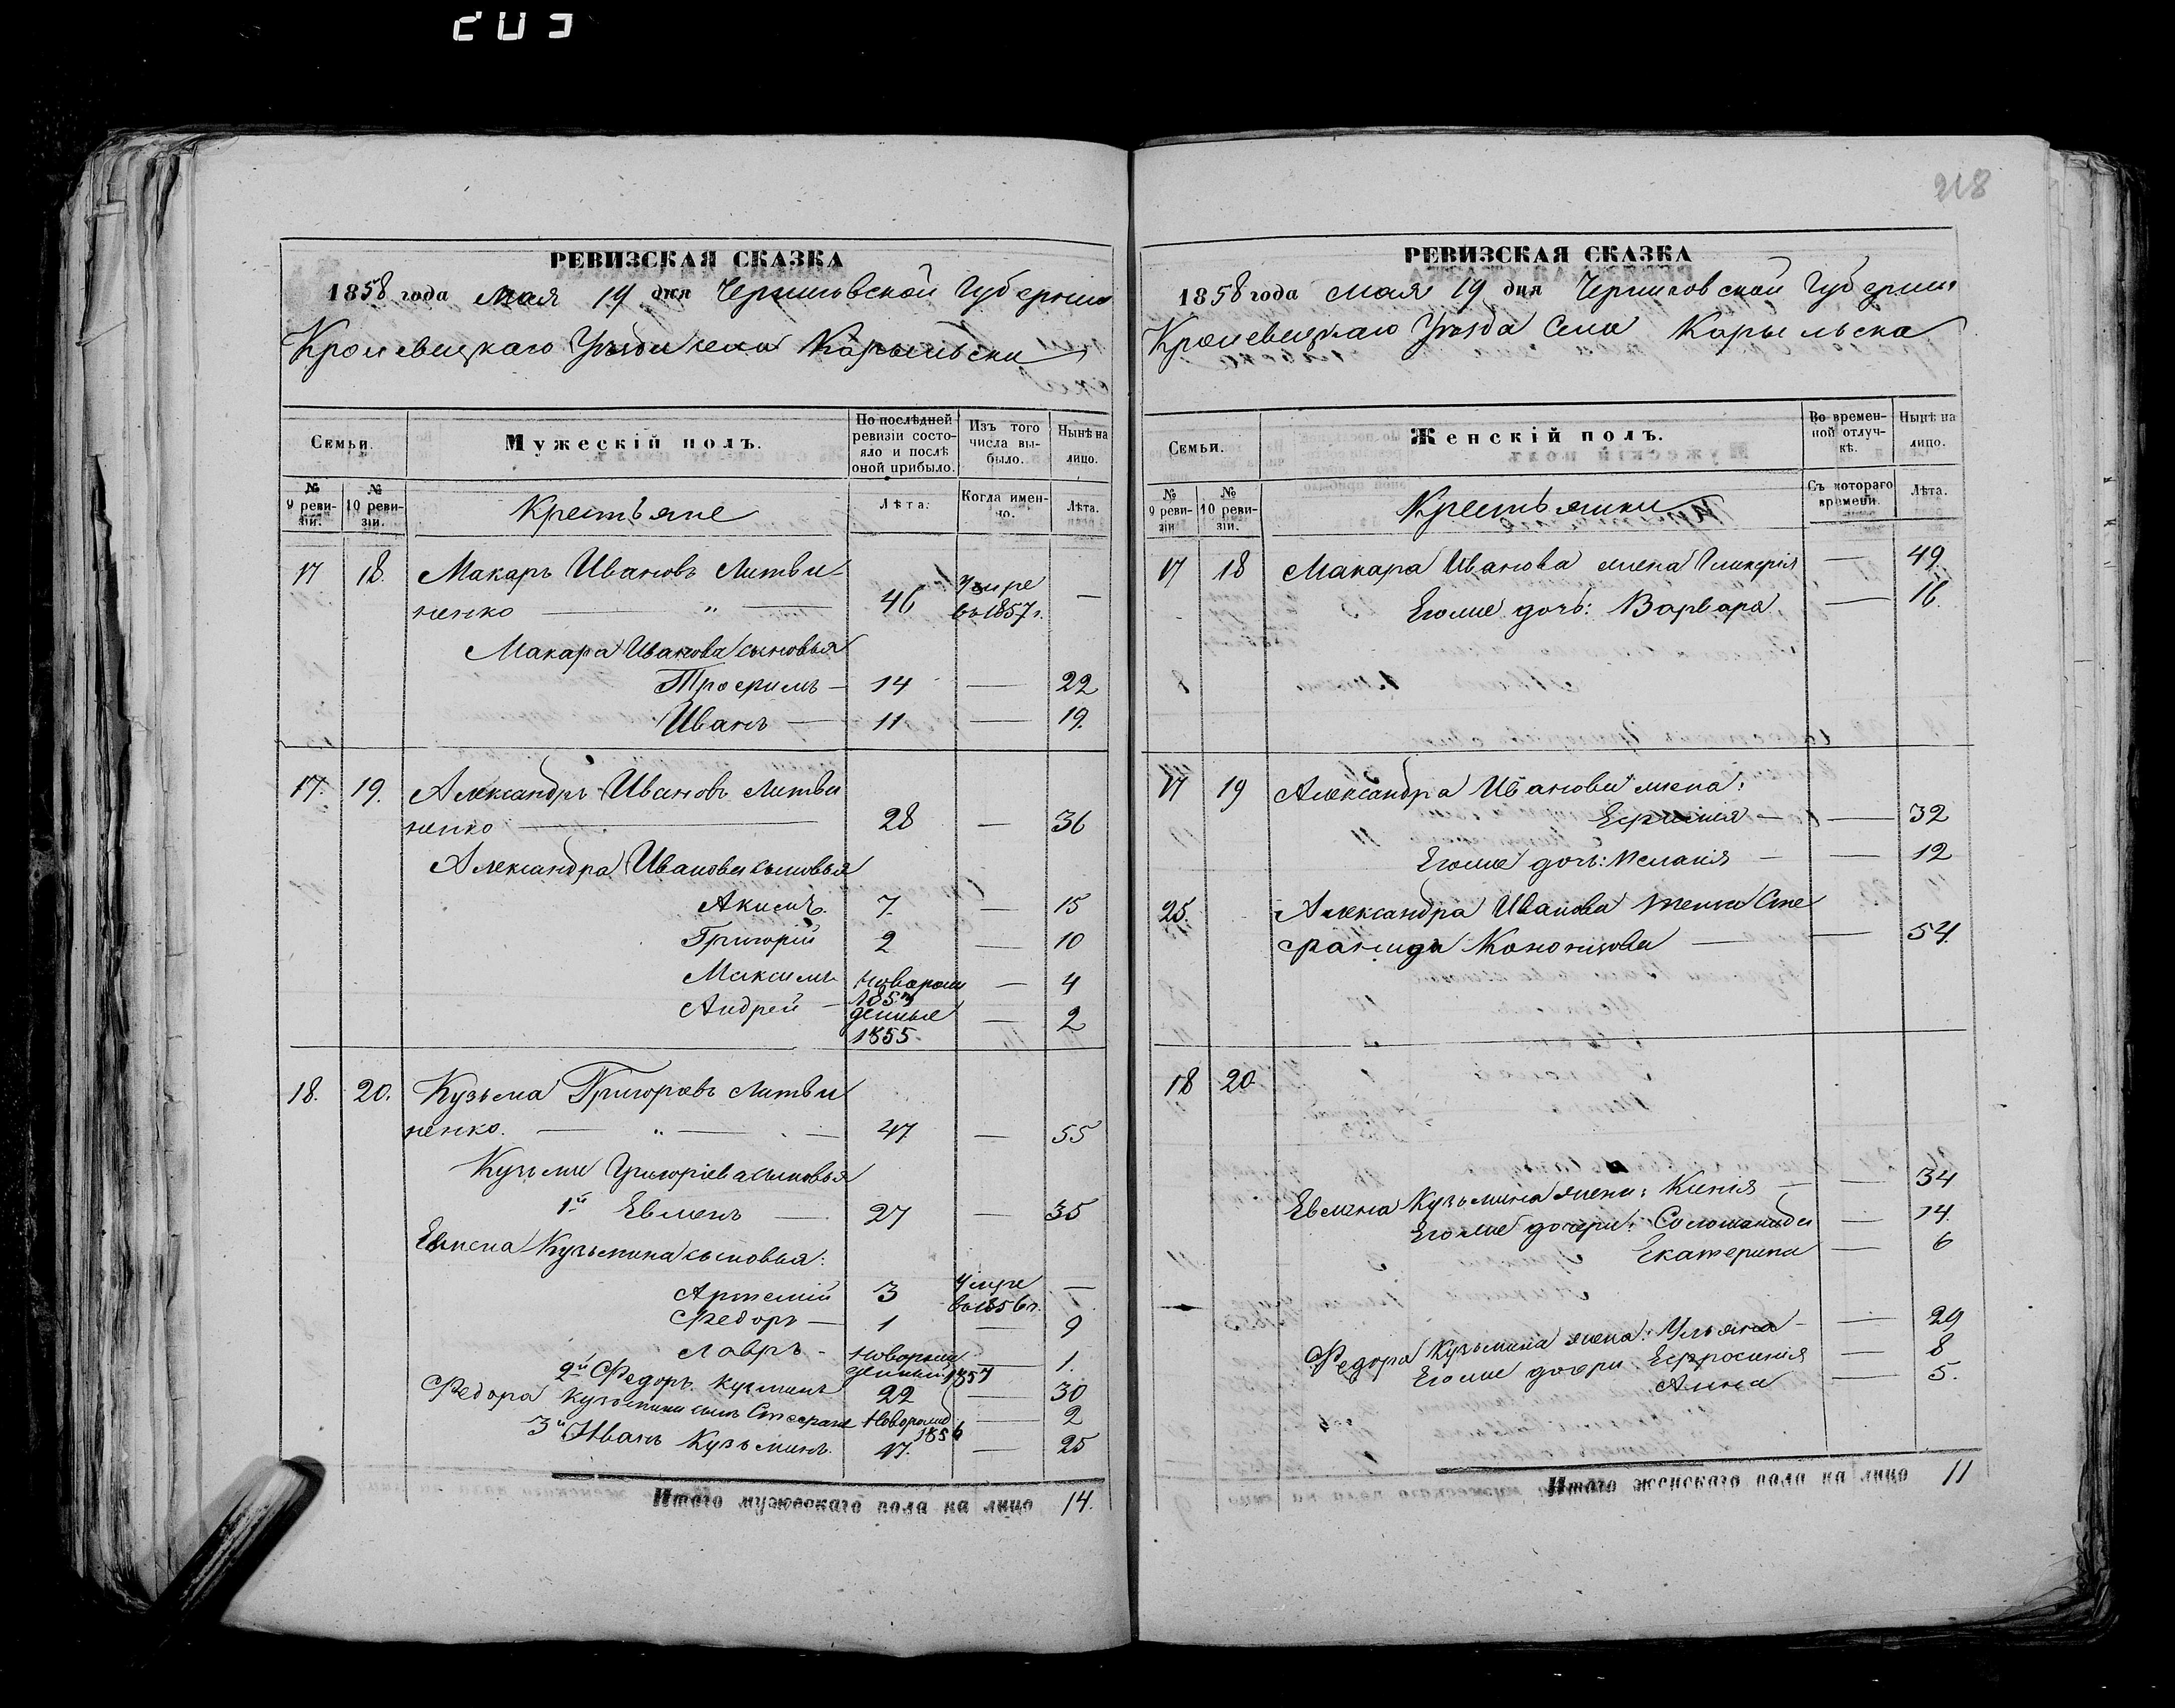 218
РЕВИЗСКАЯ СКАЗКА
1858 года мая 19 дня Черниговской Губернии
Кролевецкаго Уѣзда села Карыльска
Семьи.
Мужескій полъ.
По послѣдней ревизіи состояло и послѣ оной прибыло.
Изъ того числа выбыло.
Нынѣ на лицо.
№ 9 ревизіи.
№ 10 ревизіи.
Крестьяне
Лѣта.
Когда именно.
Лѣта.
17 18. Макаръ Ивановъ Литви-
ненко — " — 46 Умре въ 1857 г. —
Макара Иванова сыновья
Трофимъ — 14 — 22
Иванъ — 11 — 19.
17. 19. Александръ Ивановъ Литви
ненко — 28 — 36
Александра Иванова сыновья
Акимъ. 7. — 15
Григорій 2 — 10
Максимъ новорож 1853 — 4
Андрей — денные 1855 — 2
18. 20. Кузьма Григоревъ Литви
ненко. — " — 47 — 55
Кузьмы Григоріева сыновья
1й Евменъ — 27 — 35
Евмена Кузьмина сыновья:
Артемій 3 Умре въ 1856 г. —
Федоръ — 1 — 9
Лавръ - новорож денный 1857 — 1.
2й Федоръ Кузминъ 22 — 30
Федора Кузьмина сынъ Стефанъ Новорожд 1856 — 2
3й Иванъ Кузьминъ. 17. — 25
Итого мужескаго пола на лицо 14.
РЕВИЗСКАЯ СКАЗКА
1858 года мая 19 дня Черниковской Губернии
Кролевецкаго Уѣзда Села Карыльска
Семьи.
Женскій полъ.
Во временной отлучкѣ.
Нынѣ на лицо.
№ 9 ревизіи
№ 10 ревизіи.
Крестьянки
Съ котораго времени.
Лѣта.
17 18 Макара Иванова жена Гликерія — 49.
Егоже дочь: Варвара — 16.
17 19 Александра Иванова жена:
Ефимія — — 32
Егоже дочь: Меланія — — 12
25. Александра Иванова теща Сте
фанида Кононцова — — 54.
18 20.
Евмена Кузьмина жена: Кинія — — 34
Егоже дочери: Соломанида — 14.
Екатерина — 6
Федора Кузьмина жена: Ульяна — — 29
Егоже дочери: Ефросинія — 8
Анна — 5.
Итого женскаго пола на лицо 11